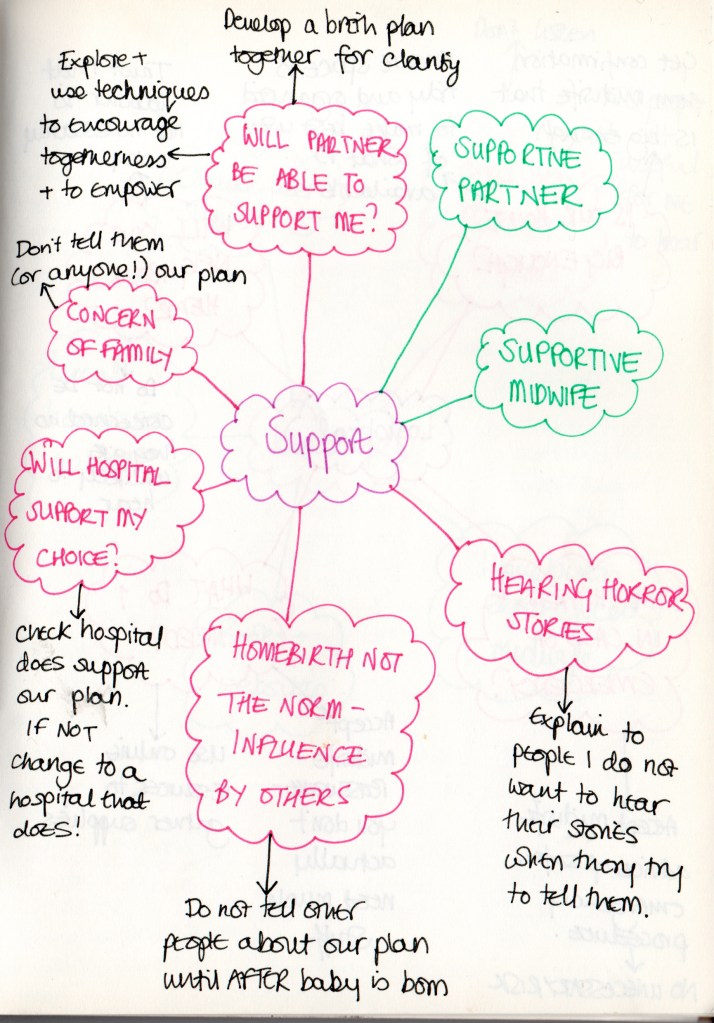 Develop a broth plan
together for clarity
Explore +
use techniques
to encourage
togetherness
+ to empower
WILL PARTNER
BE ABLE TO
SUPPORT ME?
SUPPORTIVE
PARTNER
Don't tell them
(or anyone!) our plan
CONCERN
OF FAMILY
SUPPORTIVE
MIDWIFE
Support
WILL HOSPITAL
SUPPORT MY
CHOICE?
HEARING HORROR
STORIES
HOMEBIRTH NOT
THE NORM –
INFLUENCE
BY OTHERS
Check hospital
does support
our plan.
IF NOT
change to a
hospital that
does!
Explain to
people I do not
want to hear
their stories
when they try
to tell them.
Do not tell other
people about our plan
until AFTER baby is born